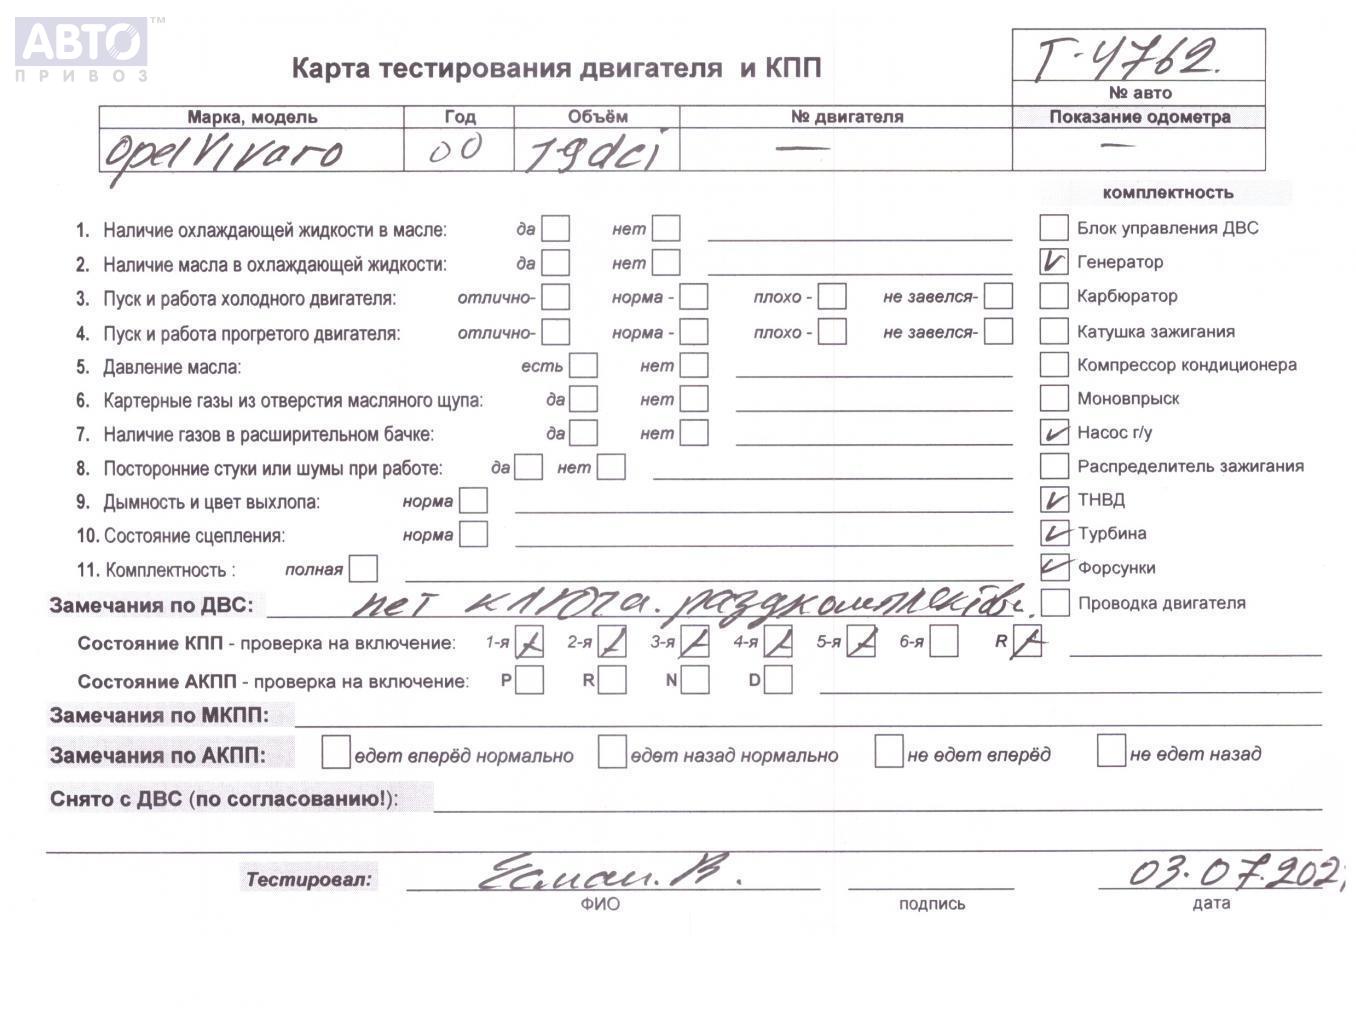 АВТО™
ПРИВОЗ
Карта тестирования двигателя и КПП
Т-4762.
№ авто
Марка, модель Год Объём № двигателя Показание одометра
Opel Vivaro 00 19dci — —
комплектность
1. Наличие охлаждающей жидкости в масле: да нет Блок управления ДВС
2. Наличие масла в охлаждающей жидкости: да нет Генератор
3. Пуск и работа холодного двигателя: отлично- норма - плохо - не завелся- Карбюратор
4. Пуск и работа прогретого двигателя: отлично- норма - плохо - не завелся- Катушка зажигания
5. Давление масла: есть нет Компрессор кондиционера
6. Картерные газы из отверстия масляного щупа: да нет Моновпрыск
7. Наличие газов в расширительном бачке: да нет Насос г/у
8. Посторонние стуки или шумы при работе: да нет Распределитель зажигания
9. Дымность и цвет выхлопа: норма ТНВД
10. Состояние сцепления: норма Турбина
11. Комплектность : полная Форсунки
Замечания по ДВС: нет ключа. Проводка двигателя
Состояние КПП - проверка на включение: 1-я 2-я 3-я 4-я 5-я 6-я R
Состояние АКПП - проверка на включение: P R N D
Замечания по МКПП:
Замечания по АКПП: едет вперёд нормально едет назад нормально не едет вперёд не едет назад
Снято с ДВС (по согласованию!):
Тестировал: Есман. В. 03.07.202
ФИО подпись дата